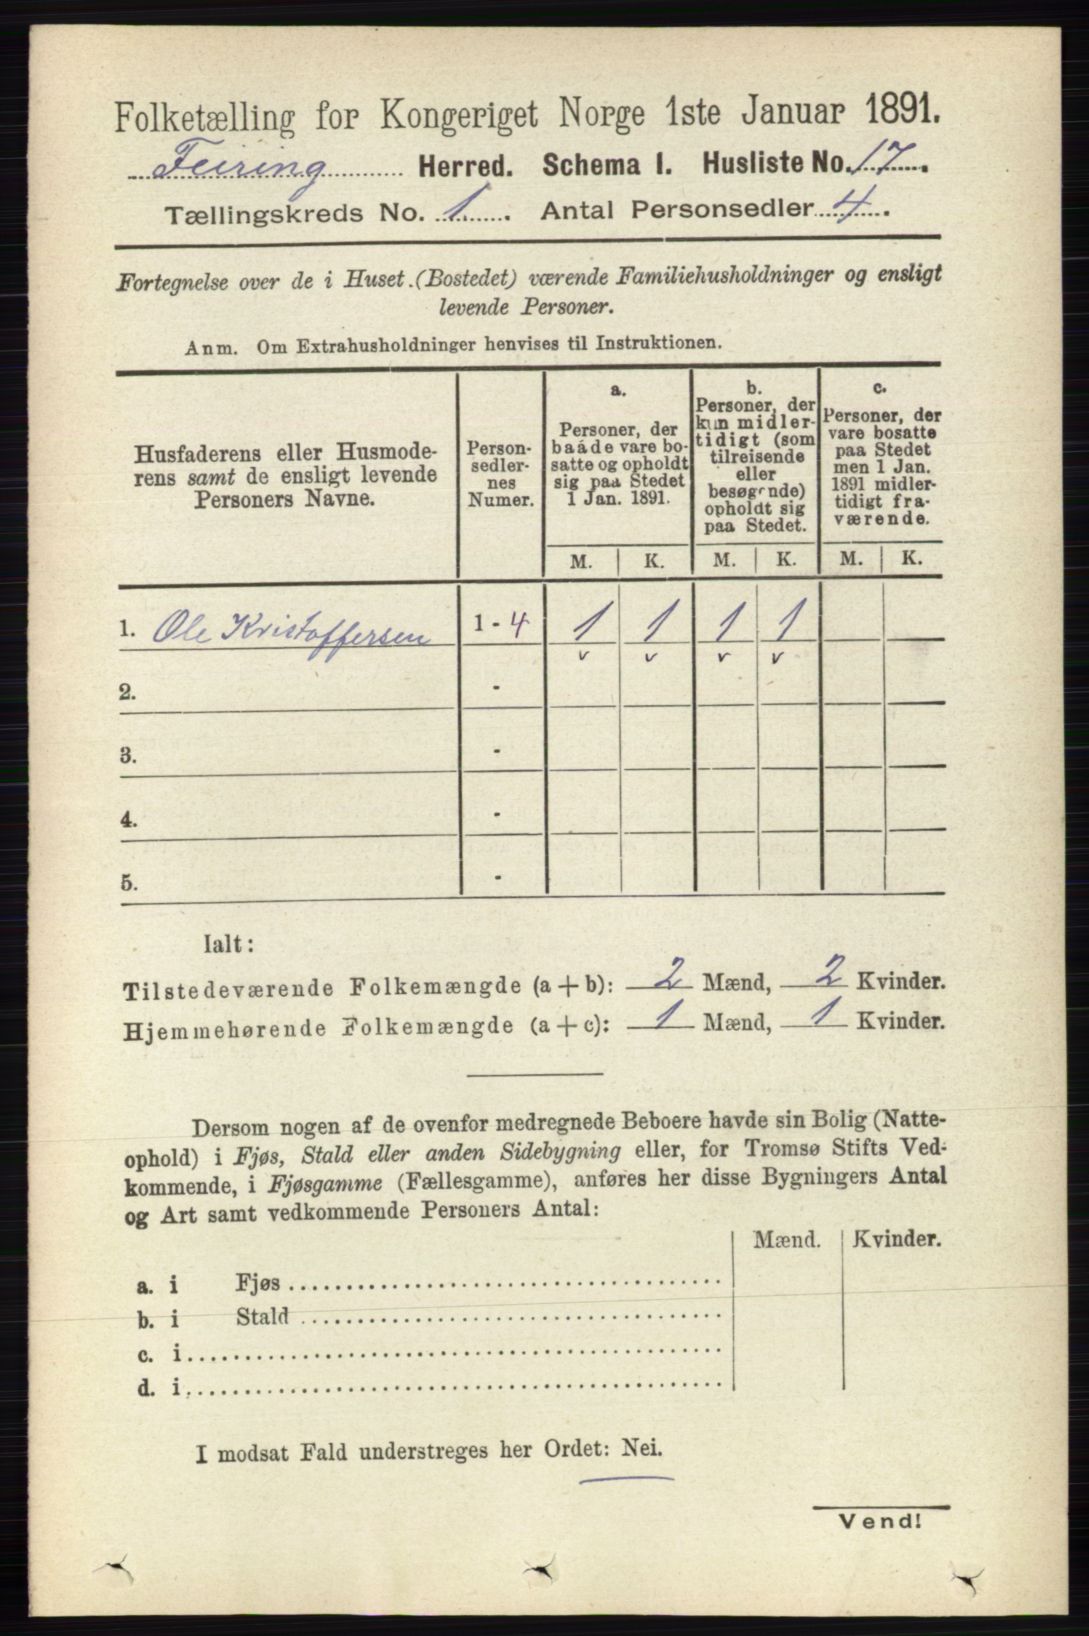 Folketælling for Kongeriget Norge 1ste Januar 1891.
Feiring Herred. Schema I. Husliste No. 17.
Tællingskreds No. 1. Antal Personsedler 4.
Fortegnelse over de i Huset (Bostedet) værende Familiehusholdninger og ensligt
levende Personer.
Anm. Om Extrahusholdninger henvises til Instruktionen.
Husfaderens eller Husmode-
rens samt de ensligt levende
Personers Navne.
Person-
sedler-
nes
Numer.
a.
Personer, der
baade vare bo-
satte og opholdt
sig paa Stedet
1 Jan. 1891.
b.
Personer, der
kun midler-
tidigt (som
tilreisende
eller
besøgende)
opholdt sig
paa Stedet.
c.
Personer, der
vare bosatte
paa Stedet
men 1 Jan.
1891 midler-
tidigt fra-
værende.
M. K. M. K. M. K.
1. Ole Kristoffersen 1 - 4 1 1 1 1
v v v v
2. -
3. -
4. -
5. -
Ialt:
Tilstedeværende Folkemængde (a + b): 2 Mænd, 2 Kvinder.
Hjemmehørende Folkemængde (a + c): 1 Mænd, 1 Kvinder.
Dersom nogen af de ovenfor medregnede Beboere havde sin Bolig (Natte-
ophold) i Fjøs, Stald eller anden Sidebygning eller, for Tromsø Stifts Ved-
kommende, i Fjøsgamme (Fællesgamme), anføres her disse Bygningers Antal
og Art samt vedkommende Personers Antal:
Mænd. Kvinder.
a. i Fjøs
b. i Stald
c. i
d. i
I modsat Fald understreges her Ordet: Nei.
Vend!